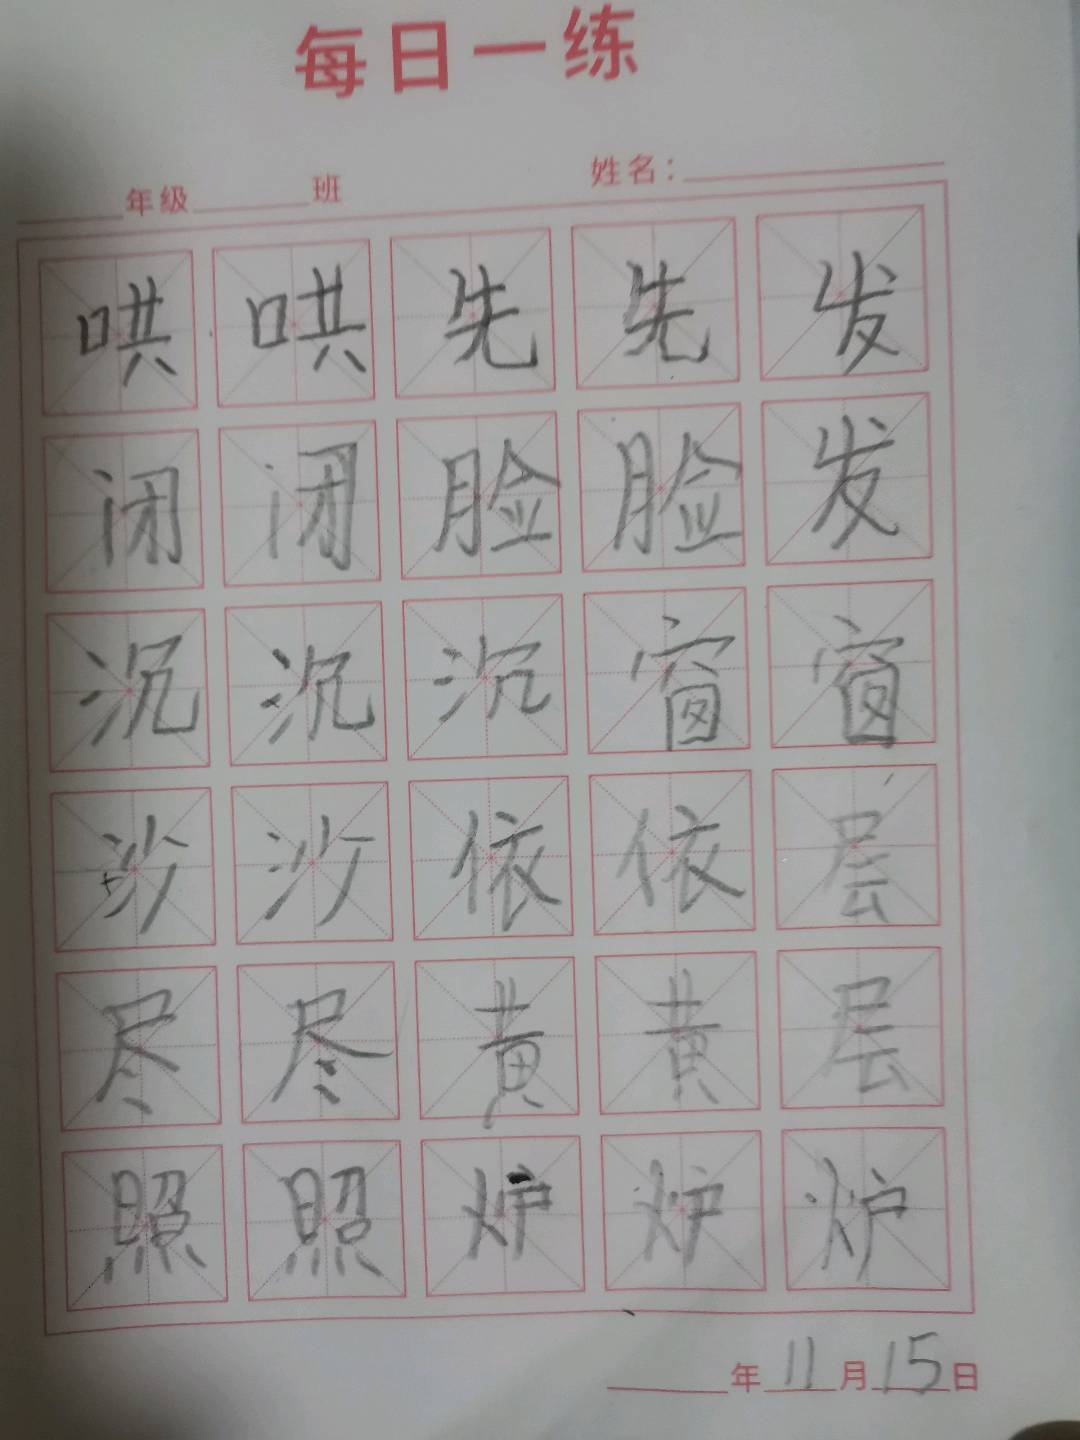 每日一练
年级 班 姓名：
哄哄先先发
闭闭脸脸发
沉沉沉窗窗
沙沙依依层
尽尽黄黄层
照照炉炉炉
年11月15日